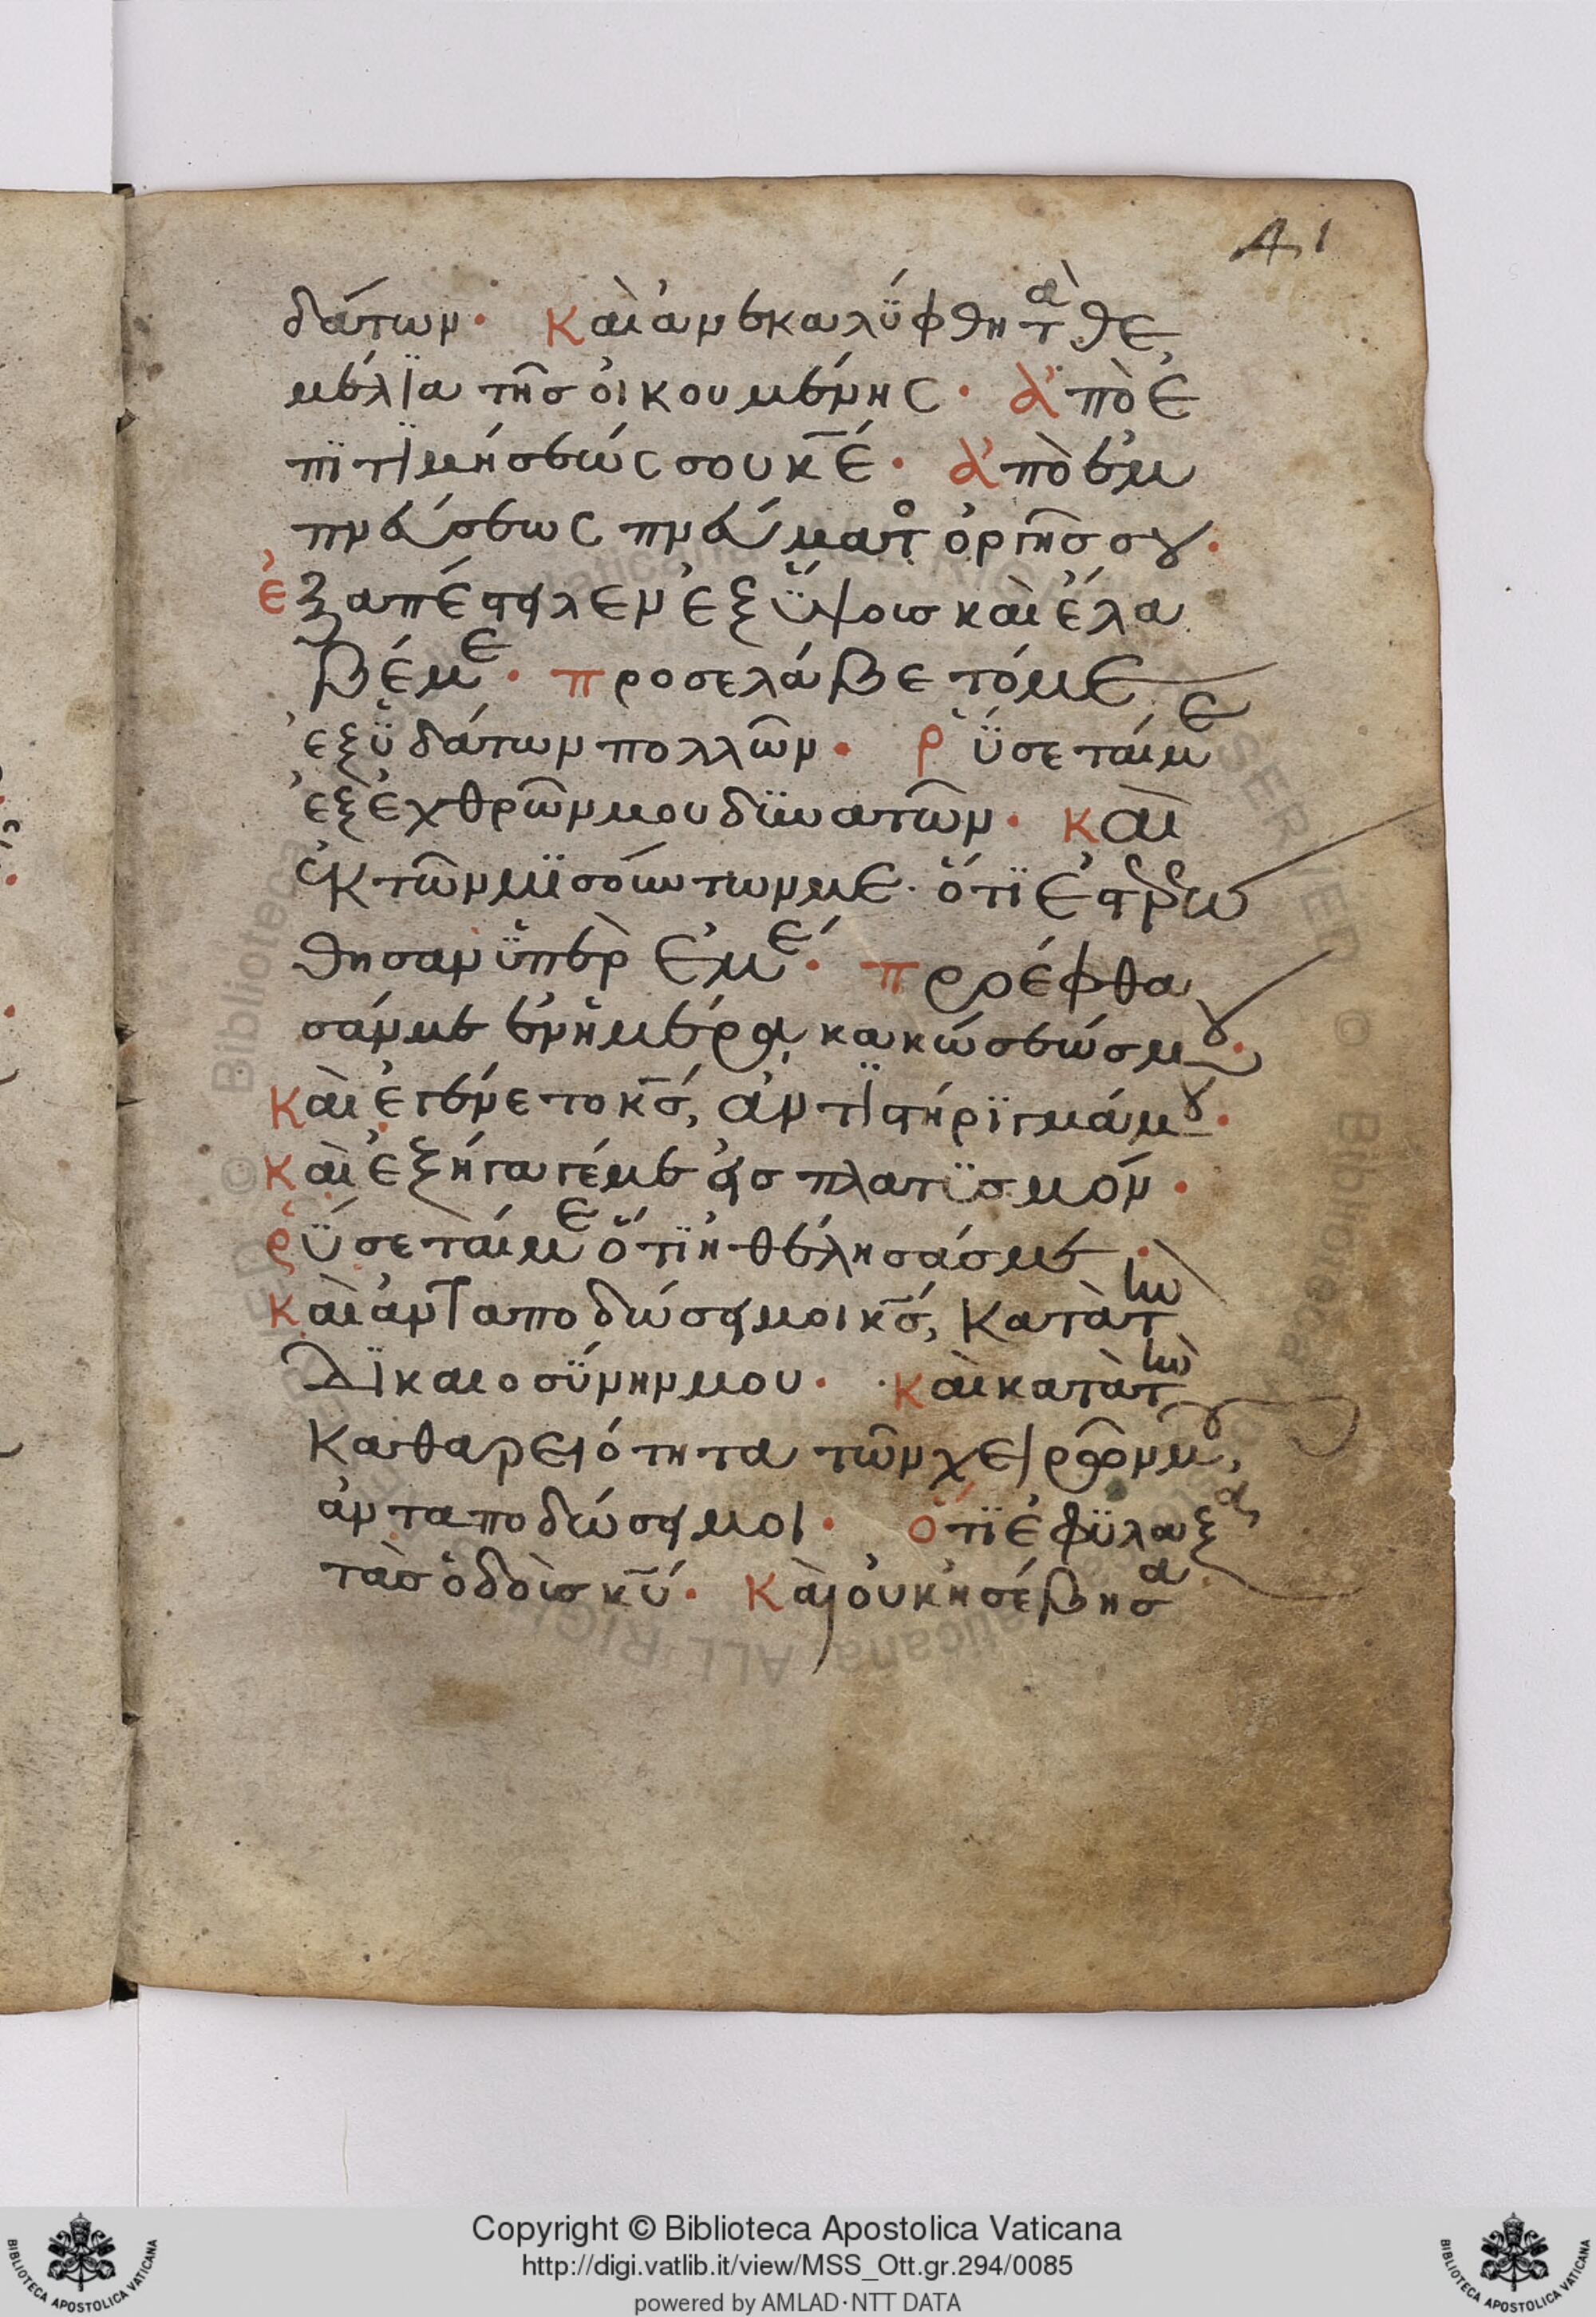 41
δάτων· Καὶ ἀνεκαλύφθη τὰ θε
μέλϊα τῆσ οἰκουμένης· ἀπὸ ἐ
πϊτϊμήσεώς σου κ̅ε̅· ἀπὸ ἐμ
πνεύσεως πνεύματο ὀργῆσ σου·
ἐξαπέστειλεν ἐξ ὕψουσ καὶ ἔλα
βέ με· προσελάβετό με
ἐξ ὑδάτων πολλῶν· ῥύσεταί με
ἐξ ἐχθρῶν μου δϋνατῶν· καὶ
ἐκ τῶν μϊσούντων με· ὅτϊ ἐστερεω
θησαν ὑπὲρ ἐμέ· προέφθα
σάν με ἐν ἡμέρα κακώσεώσ μου·
Καὶ ἐγένετο κ̅σ̅, ἀντϊστήρϊγμά μου·
Καὶ ἐξήγαγέ με εἰσ πλατϋσμόν·
ῥύσεταί με ὅτϊ ἠθέλησάσ με·
Καὶ ἀνταποδώσει μοι κ̅σ̅, Κατὰ τὴν
Δϊκαιοσύνην μου· καὶ κατὰ τὴν
Καθαρειότητα τῶν χειρῶν μου,
ἀνταποδώσει μοι· ὅτϊ ἐφύλαξα
τὰσ ὁδοὺσ κ̅υ̅· Καὶ οὐκ ἠσέβησα
Copyright © Biblioteca Apostolica Vaticana
http://digi.vatlib.it/view/MSS_Ott.gr.294/0085
powered by AMLAD·NTT DATA
BIBLIOTECA APOSTOLICA VATICANA
BIBLIOTECA APOSTOLICA VATICANA